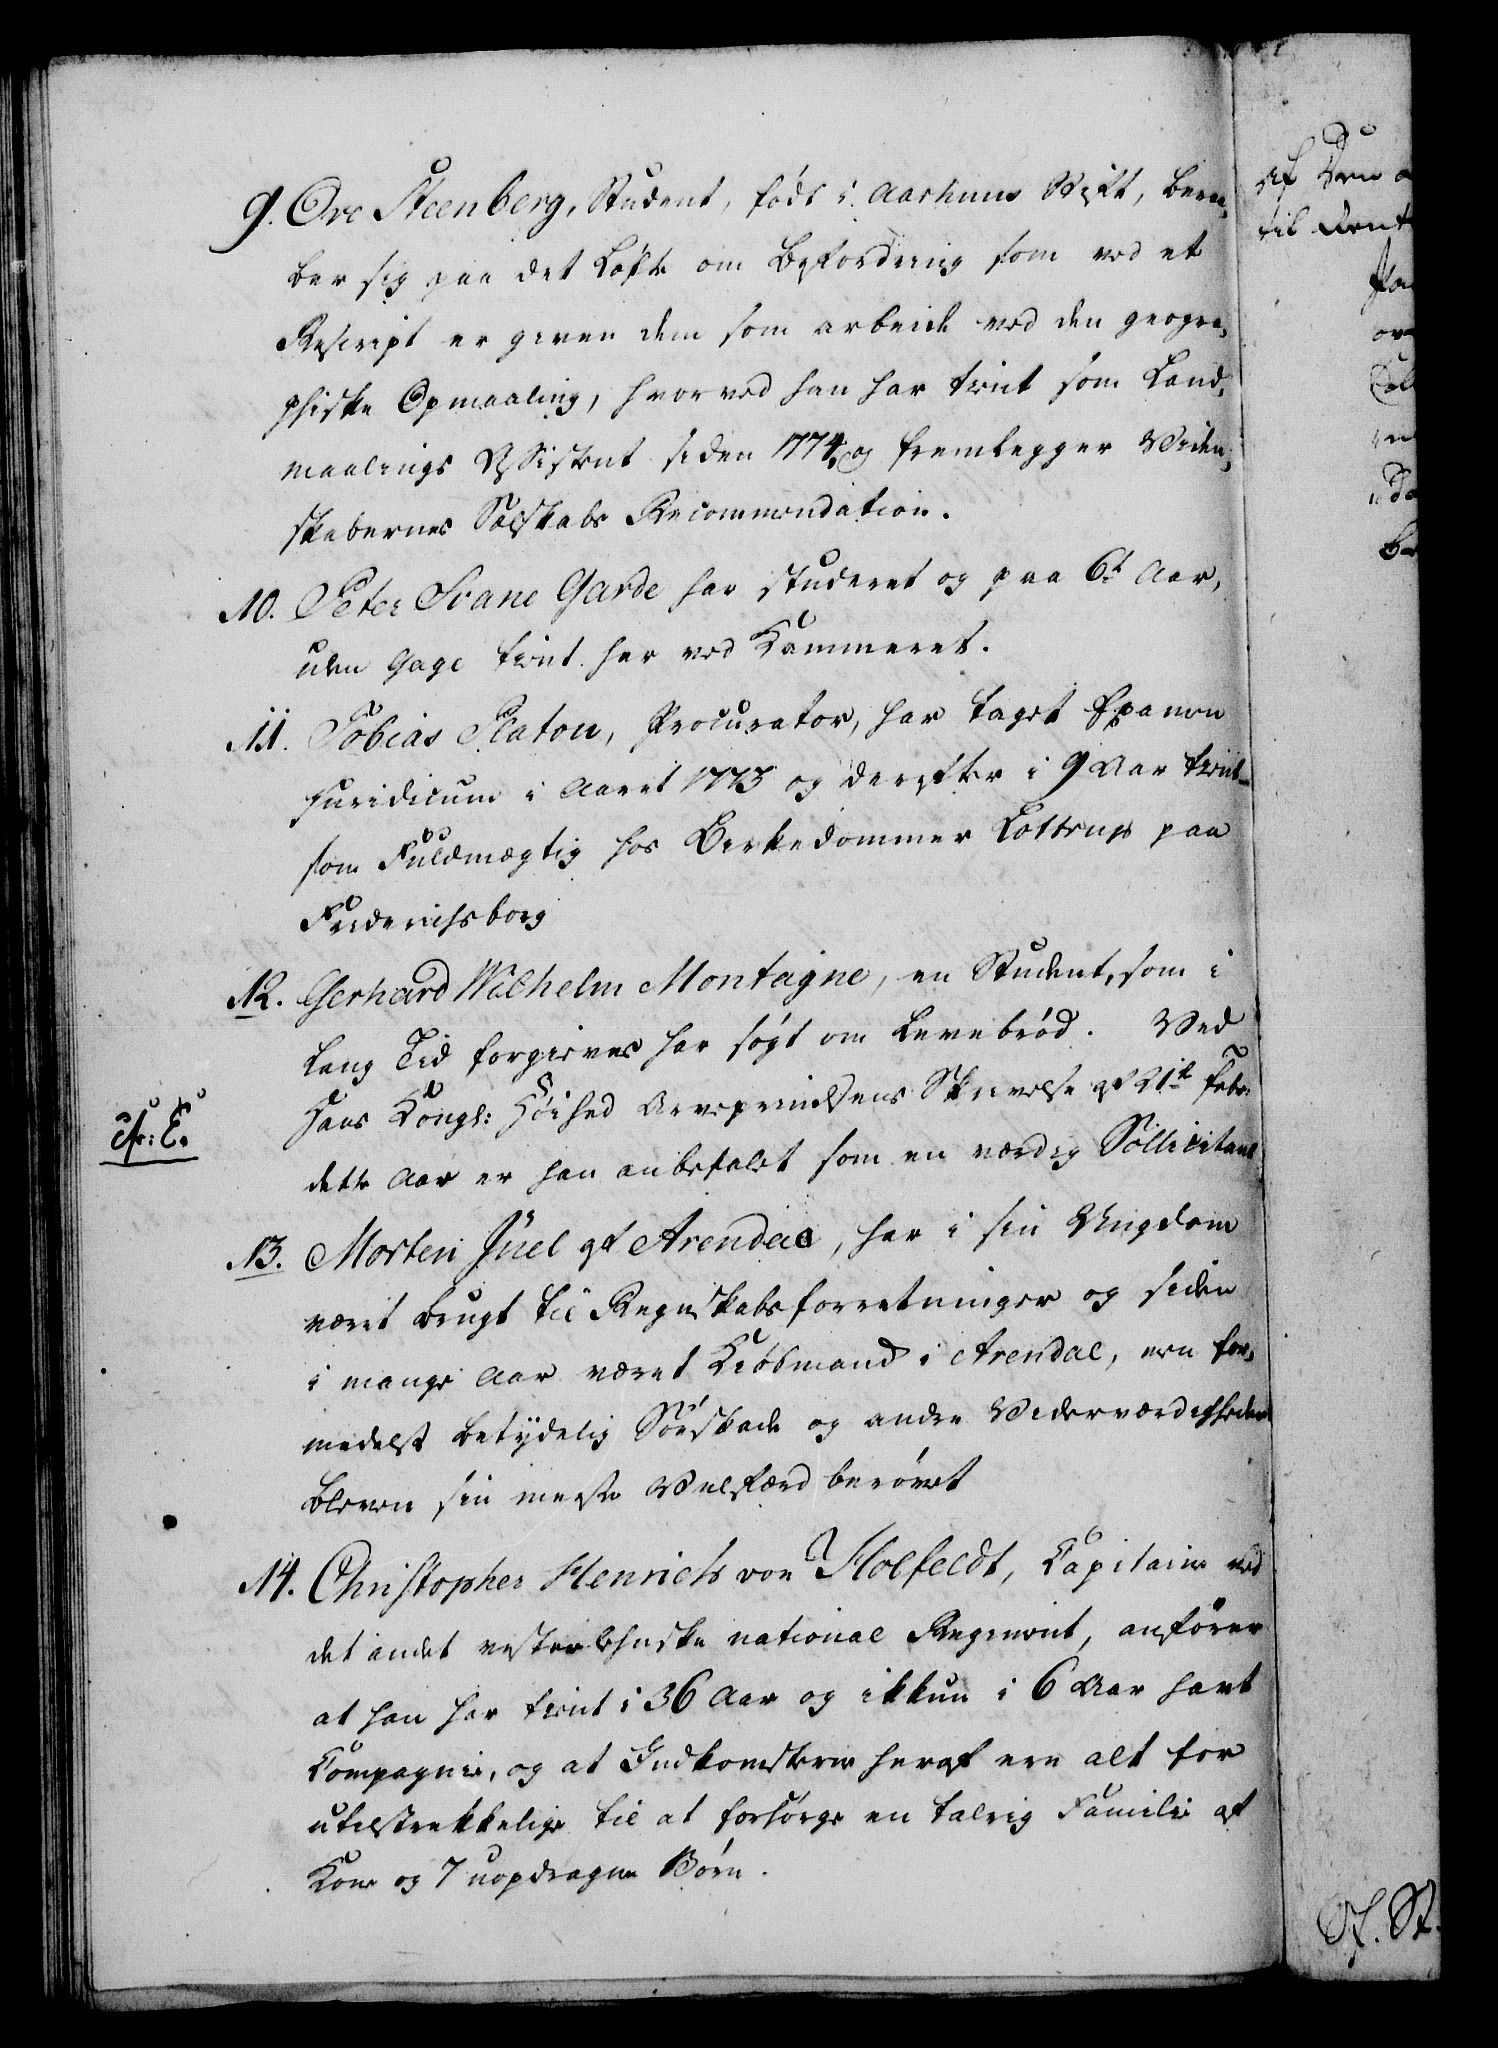 9. Ove Steenberg, Student, född i Aarhuus Stift, beraa-
ber sig paa det Løfte om Befordring som ved et
Rescript er given dem som arbeide ved den geogra-
phiske Opmaaling, hvorved han har tient som Land-
maalings Assistent siden 1774, og fremlegger Viden-
skabernes Selskabs Recommendation.
10. Peter Svane Garde har studeret og paa 6te Aar,
uden Gage tient her ved Kammeret.
11. Tobias Platou, Procurator, har taget Examen
juridicum i Aaret 1773 og derefter i 9 Aar tient
som Fuldmægtig hos Birkedommer Lottrup paa
Friderichsborg
12. Gerhard Wilhelm Montagne, en Student, som i
lang Tid forgieves har søgt om Levebrød. Ved
Hans Kongl: Høihed Arveprindsens Skrivelse af 21de Febr:
dette Aar er han anbefalet som en værdig Sollicitant
A: E.
13. Morten Juel af Arendal, har i sin Ungdom
været brugt til Regnskabsforretninger og siden
i mange Aar været Kiøbmand i Arendal, men for-
medelst betydelig Søeskade og andre Viderværdigheder
bleven sin meste Velfærd berøvet
14. Christopher Henrich von Holfeldt, Capitain ved
det andet vesterlehnske national Regiment, anfører
at han har tient i 36 Aar og ikkun i 6 Aar havt
Compagnie, og at Indkomsterne heraf ere alt for
utilstrekkelige til at forsørge en talrig Familie af
Kone og 7 uopdragne Børn.
Af Den
til Rent